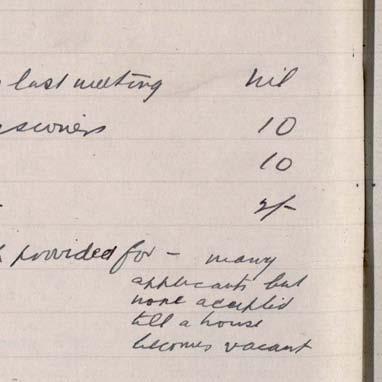 last meeting nil
10
10
2/-
provided for - many
applicants but
none accepted
till a house
becomes vacant